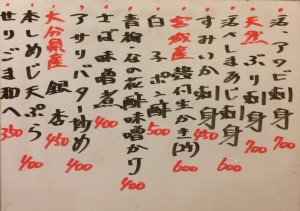 活、アワビ刺身 700
天然ぶり刺身 700
活べしまあじ刺身 600
すみいか刺身 450
宮城産殻付生かき(2ケ) 600
白子ポン酢 500
青柳・なの花酢味噌がけ 400
さば味噌煮 400
アサリバター炒め 400
大分県産銀杏 450
本しめじ天ぷら 400
せりごま和へ 350